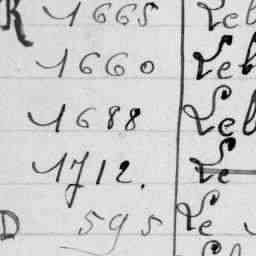 R 1665 Leb
1660 Leb
1688 Leb
1712. Le
D 595 Le